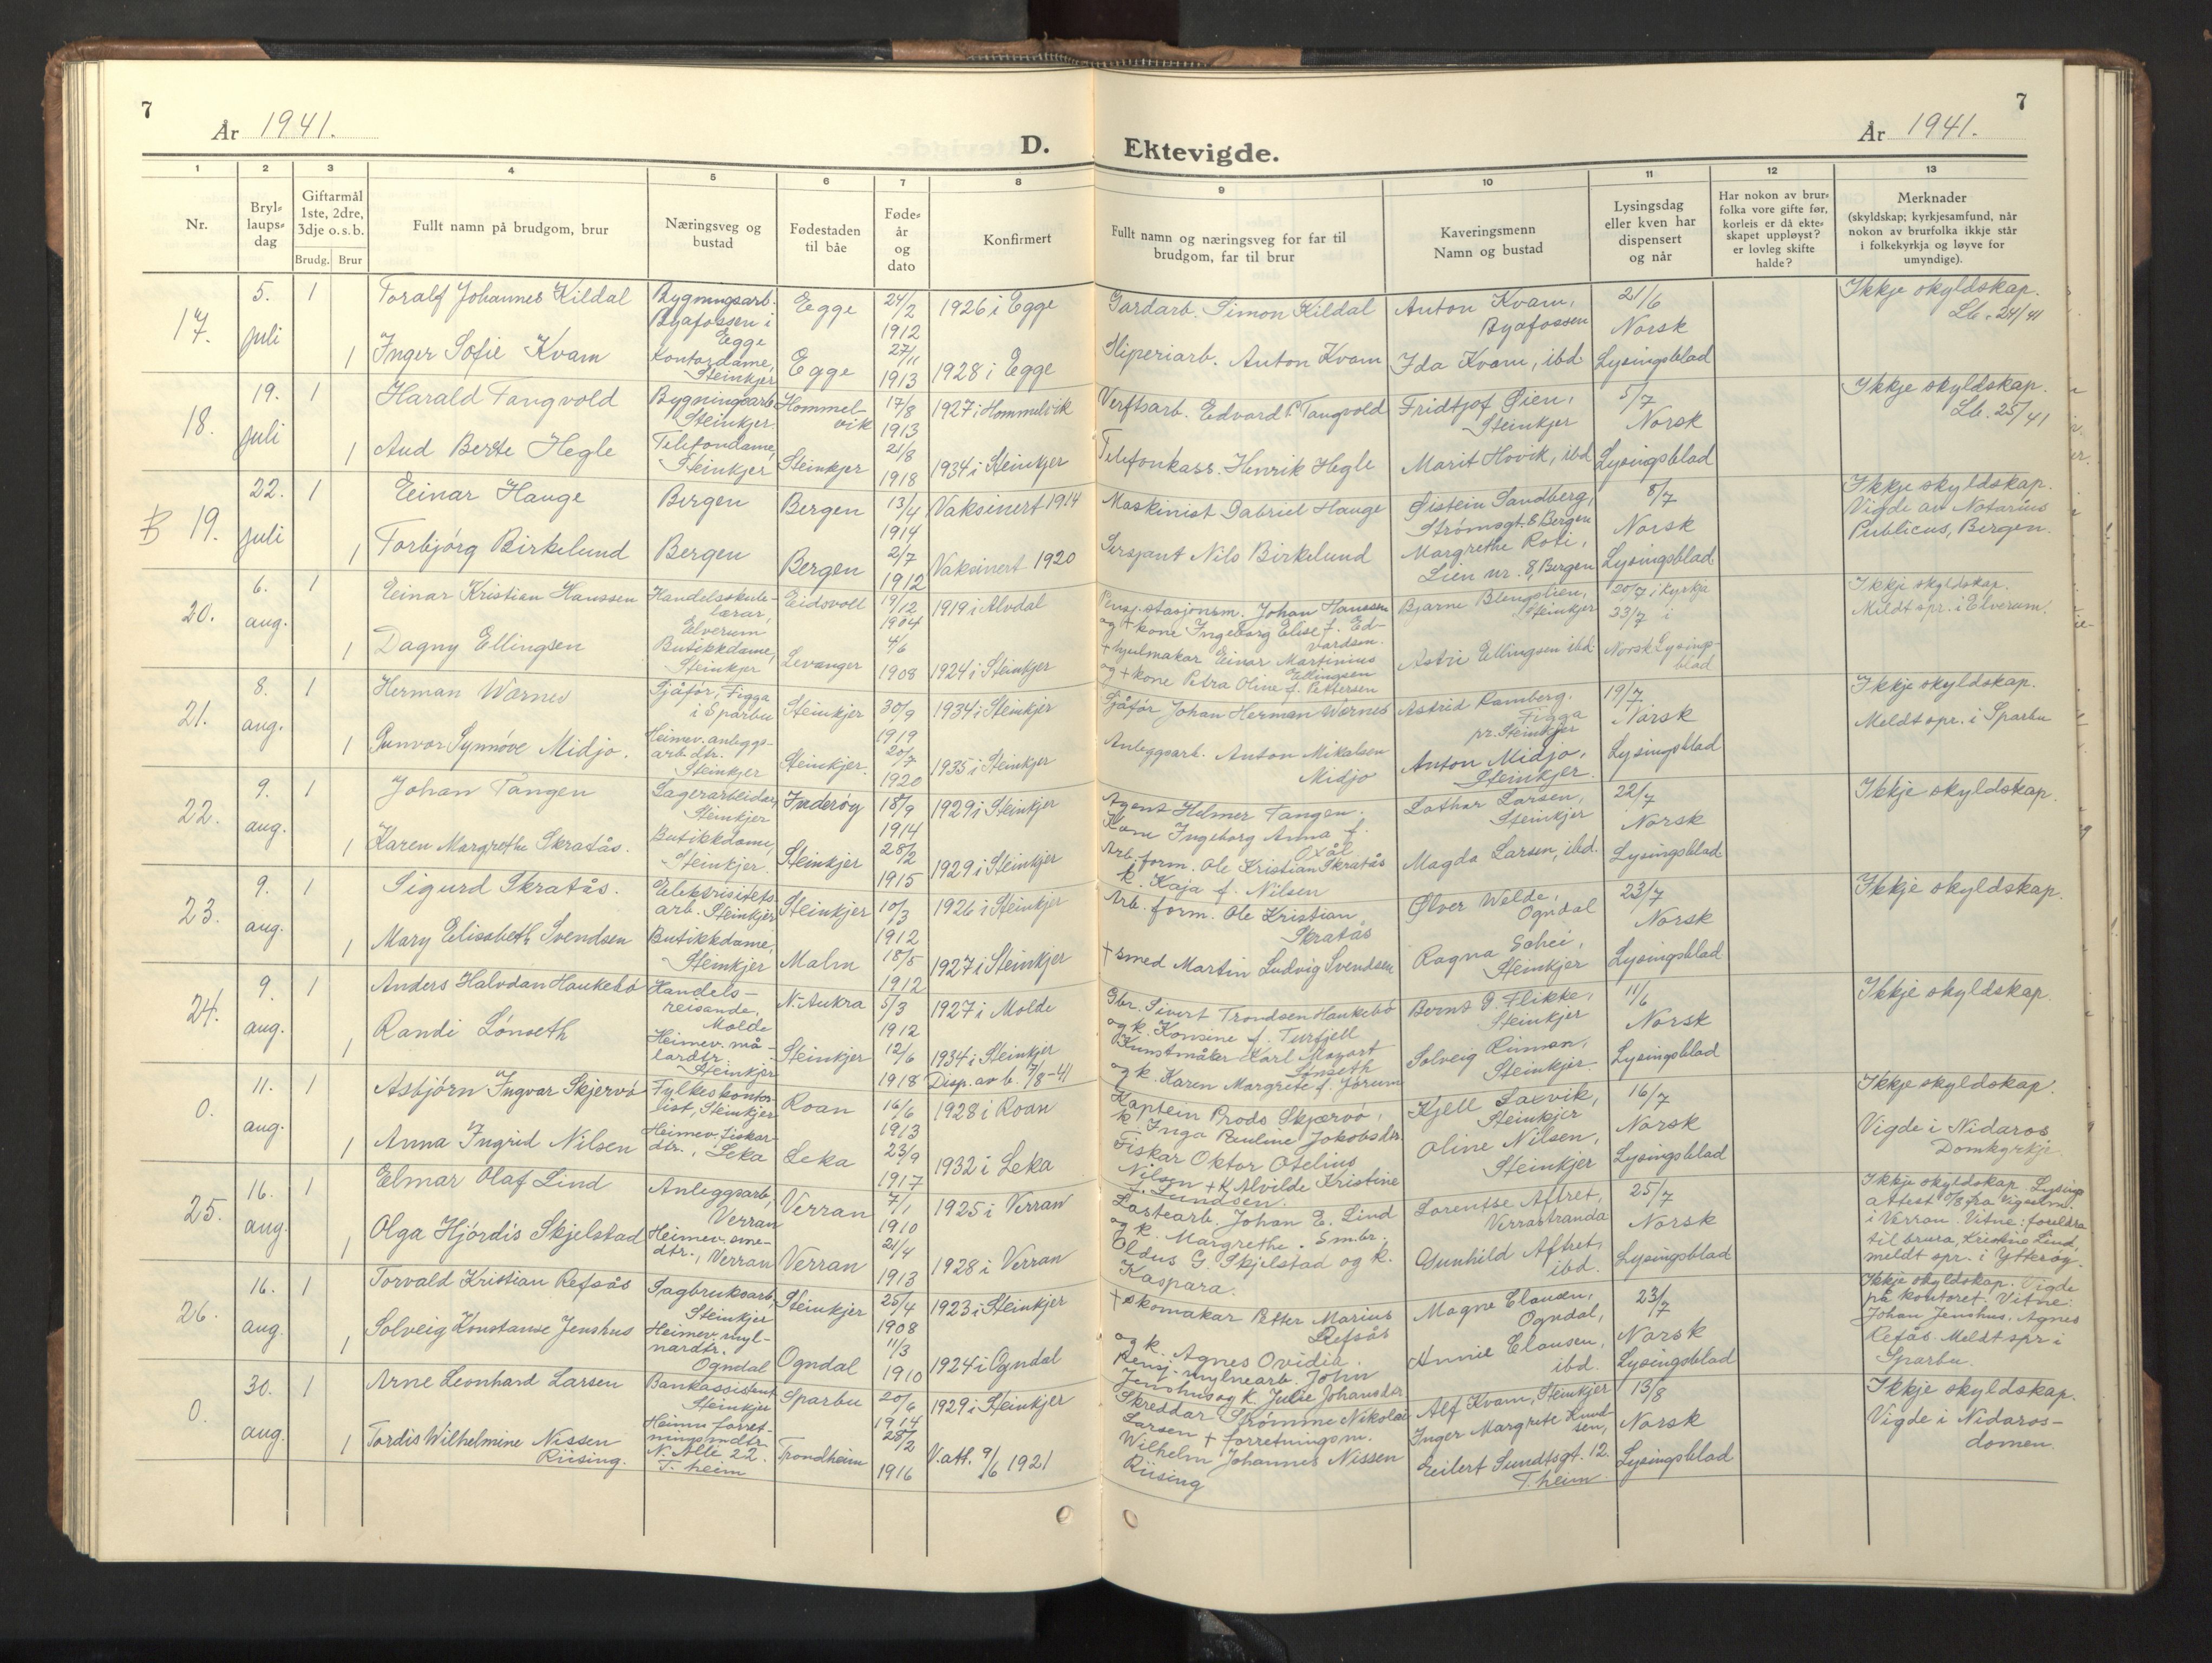 7
År 1941.
D. Ektevigde.
År 1941.
7
1 2 3 4 5 6 7 8 9 10 11 12 13
Nr.
Bryl-
laups-
dag
Giftarmål
1ste, 2dre,
3dje o. s. b.
Brudg. Brur
Fullt namn på brudgom, brur
Næringsveg og
bustad
Fødestaden
til båe
Føde-
år
og
dato
Konfirmert
Fullt namn og næringsveg for far til
brudgom, far til brur
Kaveringsmenn
Namn og bustad
Lysingsdag
eller kven har
dispensert
og når
Har nokon av brur-
folka vore gifte før,
korleis er då ekte-
skapet uppløyst?
er lovleg skifte
halde?
Merknader
(skyldskap; kyrkjesamfund, når
nokon av brurfolka ikkje står
i folkekyrkja og løyve for
umyndige).
17.
5.
juli
1
Toralf Johannes Kildal
Bygningsarb.
Byafossen i
Egge
Egge
24/2
1912
1926 i Egge
Gardarb. Simon Kildal
Anton Kvam,
Byafossen
21/6
Norsk
Lysingsblad
Ikkje skyldskap.
Lb. 24/41
1
Inger Sofie Kvam
Kontordame,
Steinkjer
Egge
27/11
1913
1928 i Egge
Sliperiarb. Anton Kvam
Ida Kvam, ibd
18.
19.
juli
1
Harald Tangvold
Bygningsarb.
Steinkjer.
Hommel-
vik
17/8
1913
1927 i Hommelvik
Verftsarb. Edvard P. Tangvold
Fridtjof Øien,
Steinkjer
5/7
Norsk
Lysingsblad
Ikkje skyldskap.
Lb. 25/41
1
Aud Berte Hegle
Telefondame,
Steinkjer
Steinkjer
21/8
1918
1934 i Steinkjer
Telefonkass. Henrik Hegle
Marit Hovik, ibd
B 19.
22.
juli
1
Einar Hauge
Bergen
Bergen
13/4
1914
Vaksinert 1914
Maskinist Gabriel Hauge
Øistein Sandberg,
Strømsgt. 8 Bergen
8/7
Norsk
Lysingsblad
Ikkje skyldskap.
Vigde av Notarius
Publicus, Bergen.
1
Torbjørg Birkelund
Bergen
Bergen
2/7
1912
Vaksinert 1920
Sersjant Nils Birkelund
Margrethe Roti,
Lien nr. 8, Bergen
20.
6.
aug.
1
Einar Kristian Hanssen
Handelsskule-
lærar,
Elverum
Eidsvoll
19/12
1904
1919 i Alvdal
Pensj. stasjonsm. Johan Hanssen
og + kone Ingeborg Elise f. Ed-
vardsen.
Bjarne Blengslien,
Steinkjer
20/7 i kyrkja
23/7 i
Norsk Lysings-
blad
Ikkje skyldskap.
Meldt spr. i Elverum.
1
Dagny Ellingsen
Butikkdame,
Steinkjer
Levanger
4/6
1908
1924 i Steinkjer
+ hjulmakar Einar Martinius
Ellingsen
og + kone Petra Oline f. Pettersen
Astri Ellingsen ibd
21.
8.
aug.
1
Herman Wærnes
Sjåfør, Figga
i Sparbu
Steinkjer
30/9
1919
1934 i Steinkjer
Sjåfør Johan Herman Wærnes
Astrid Ramberg.
Figga
pr. Steinkjer
19/7
Norsk
Lysingsblad
Ikkje skyldskap.
Meldt spr. i Sparbu
1
Gunvor Synnøve Midjo.
Heimev. anleggs-
arb. dtr.
Steinkjer
Steinkjer.
20/7
1920
1935 i Steinkjer
Anleggsarb. Anton Mikalsen
Midjo
Anton Midjo,
Steinkjer.
22.
9.
aug.
1
Johan Tangen
Lagerarbeidar,
Steinkjer
Inderøy
18/9
1914
1929 i Steinkjer
Agent Helmer Tangen.
Kone Ingeborg Anna f.
Oxål
Lothar Larsen,
Steinkjer
22/7
Norsk
Lysingsblad
Ikkje skyldskap.
1
Karen Margrethe Skratås.
Butikkdame,
Steinkjer.
Steinkjer
28/2
1915
1929 i Steinkjer
Arb. form. Ole Kristian Skratås
k. Kaja f. Nilsen
Magda Larsen, ibd.
23.
9.
aug.
1
Sigurd Skratås.
Elektrisitets
arb. Steinkjer
Steinkjer
10/3
1912
1926 i Steinkjer
Arb. form. Ole Kristian
Skratås
Ølver Welde,
Ogndal
23/7
Norsk
Lysingsblad
Ikkje skyldskap.
1
Mary Elisabeth Svendsen
Butikkdame,
Steinkjer
Malm
18/5
1912
1927 i Steinkjer
+ smed Martin Ludvig Svendsen
Ragna Schei,
Steinkjer
24.
9.
aug.
1
Anders Halvdan Haukebø
Handels-
reisande,
Molde
N.-Aukra
5/3
1912
1927 i Molde
Gbr. Sivert Trondsen Haukebø
og k. Konsine f. Turfjell
Bernt G. Flikke,
Steinkjer
11/6
Norsk
Lysingsblad
Ikkje skyldskap.
1
Randi Lønseth
Heimev. må-
lardtr.
Steinkjer
Steinkjer
12/6
1918
1934 i Steinkjer
Disp. av b. 7/8-41
Kunstmåler Karl Mozart
Lønseth
og k. Karen Margrete f. Jørum
Solveig Rinnan,
Steinkjer.
0.
11.
aug.
1
Asbjørn Ingvar Skjervø
Fylkeskontor-
list, Steinkjer
Roan
16/6
1913
1928 i Roan
Kaptein Prods Skjærvø,
k. Inga Pauline Jakobsdr
Kjell Saxvik,
Steinkjer
16/7
Norsk
Lysingsblad
Ikkje skyldskap.
Vigde i Nidaros
Domkyrkje
1
Anna Ingrid Nilsen
Heimev. fiskar-
dtr., Leka
Leka
23/9
1917
1932 i Leka
Fiskar Oktor Otelius
Nilsen + k Alvilde Kristine
f. Lundsen.
Oline Nilsen,
Steinkjer
25.
16.
aug.
1
Elmar Olaf Lind
Anleggsarb,
Verran
Verran
7/1
1910
1925 i Verran
Lastearb. Johan E. Lind
og k. Margrethe.
Lorentse Aftret,
Verrastranda
25/7
Norsk
Lysingsblad
Ikkje skyldskap. Lysings
attest
i Verran. Vitne: foreldra
til brura, Kristine Lind,
meldt spr. i Ytterøy.
1
Olga Hjørdis Skjelstad
Heimev. sme-
dtr., Verran
Verran
21/4
1913
1928 i Verran
Sm.br.
Oldus G. Skjelstad og k.
Kaspara.
Gunhild Aftret,
ibd.
26.
16.
aug.
1
Torvald Kristian Refsås
Sagbruksarb,
Steinkjer
Steinkjer
25/4
1908
1923 i Steinkjer
+ skomakar Petter Marius
Refsås
og k. Agnes Ovidia.
Magne Clausen,
Ogndal,
23/7
Norsk
Lysingsblad
Ikkje skyldskap. Vigde
på kontoret. Vitne:
Johan Jenshus, Agnes
Refsås. Meldt spr i
Sparbu.
1
Solveig Konstanse Jenshus
Heimev. myl-
nardtr.
Ogndal
Ogndal
11/3
1910
1924 i Ogndal
Pensj. mylnearb. John
Jenshus og k. Julie Johansdr
Annie Clausen,
ibd.
0.
30.
aug.
1
Arne Leonhard Larsen
Bankassistent
Steinkjer
Sparbu
20/6
1914
1929 i Steinkjer
Skreddar Strømme Nikolai
Larsen
Alf Kvam, Steinkjer
13/8
Norsk
Lysingsblad
Ikkje skyldskap.
Vigde i Nidaros-
domen.
1
Tordis Wilhelmine Nissen
Riising.
Heimev. forret-
ningsmdtr.
N. Alle 22.
T.heim
Trondheim
28/2
1916
V.att. 9/6 1921
+ forretningsm.
Wilhelm Johannes Nissen
Riising
Inger Margrete Knud-
sen,
Eilert Sundtsgt. 12.
T.heim